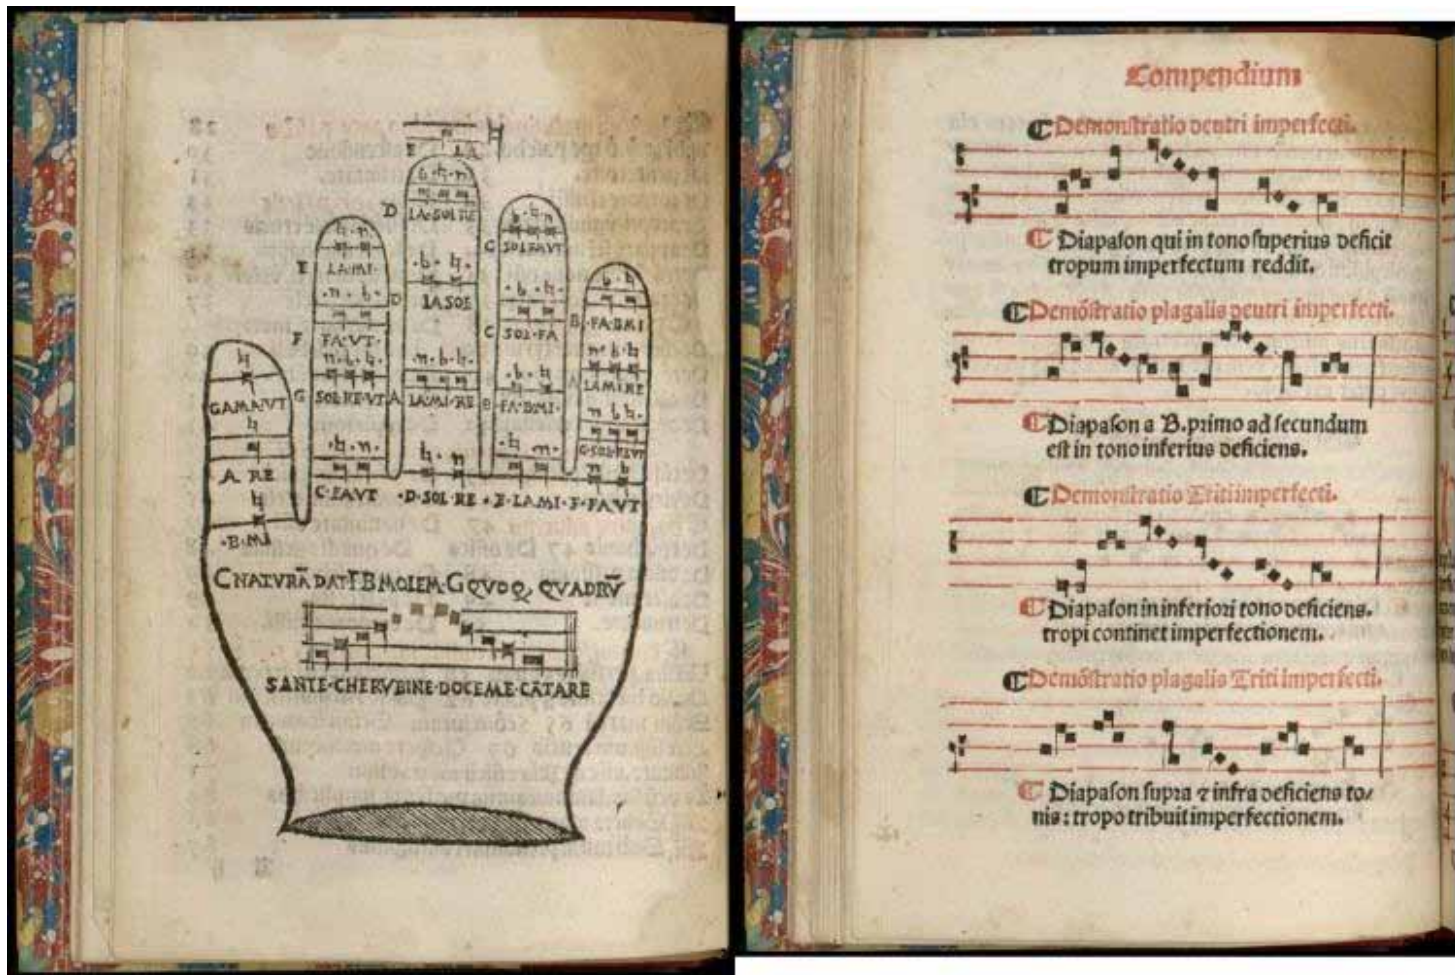 H
D
LA·SOL·RE
C
SOL FA VT
E
LA·MI·
D
LA SOL
C
SOL·FA
B
·FA·B MI
F
FA·VT·
GAMA·VT
G
SOL·RE·VT
A
LA·MI·RE
B
·FA·B·MI·
A
LA MI RE
G·SOL·RE VT
A RE
C·FAVT
·D·SOL·RE
·E·LAMI·
F·FAVT
·B·MI
C NATVRĀ DAT F B MOLEM·G QVOQ, QVADRV̄
SANTE·CHERVBINE·DOCEME·CĀTARE
Compendium
Demonstratio deutri imperfecti.
Diapason qui in tono superius deficit
tropum imperfectum reddit.
Demōstratio plagalis deutri imperfecti.
Diapason a B. primo ad secundum
est in tono inferius deficiens.
Demonstratio Triti imperfecti.
Diapason in inferiori tono deficiens.
tropi continet imperfectionem.
Demōstratio plagalis Triti imperfecti.
Diapason supra ⁊ infra deficiens to/
nis: tropo tribuit imperfectionem.